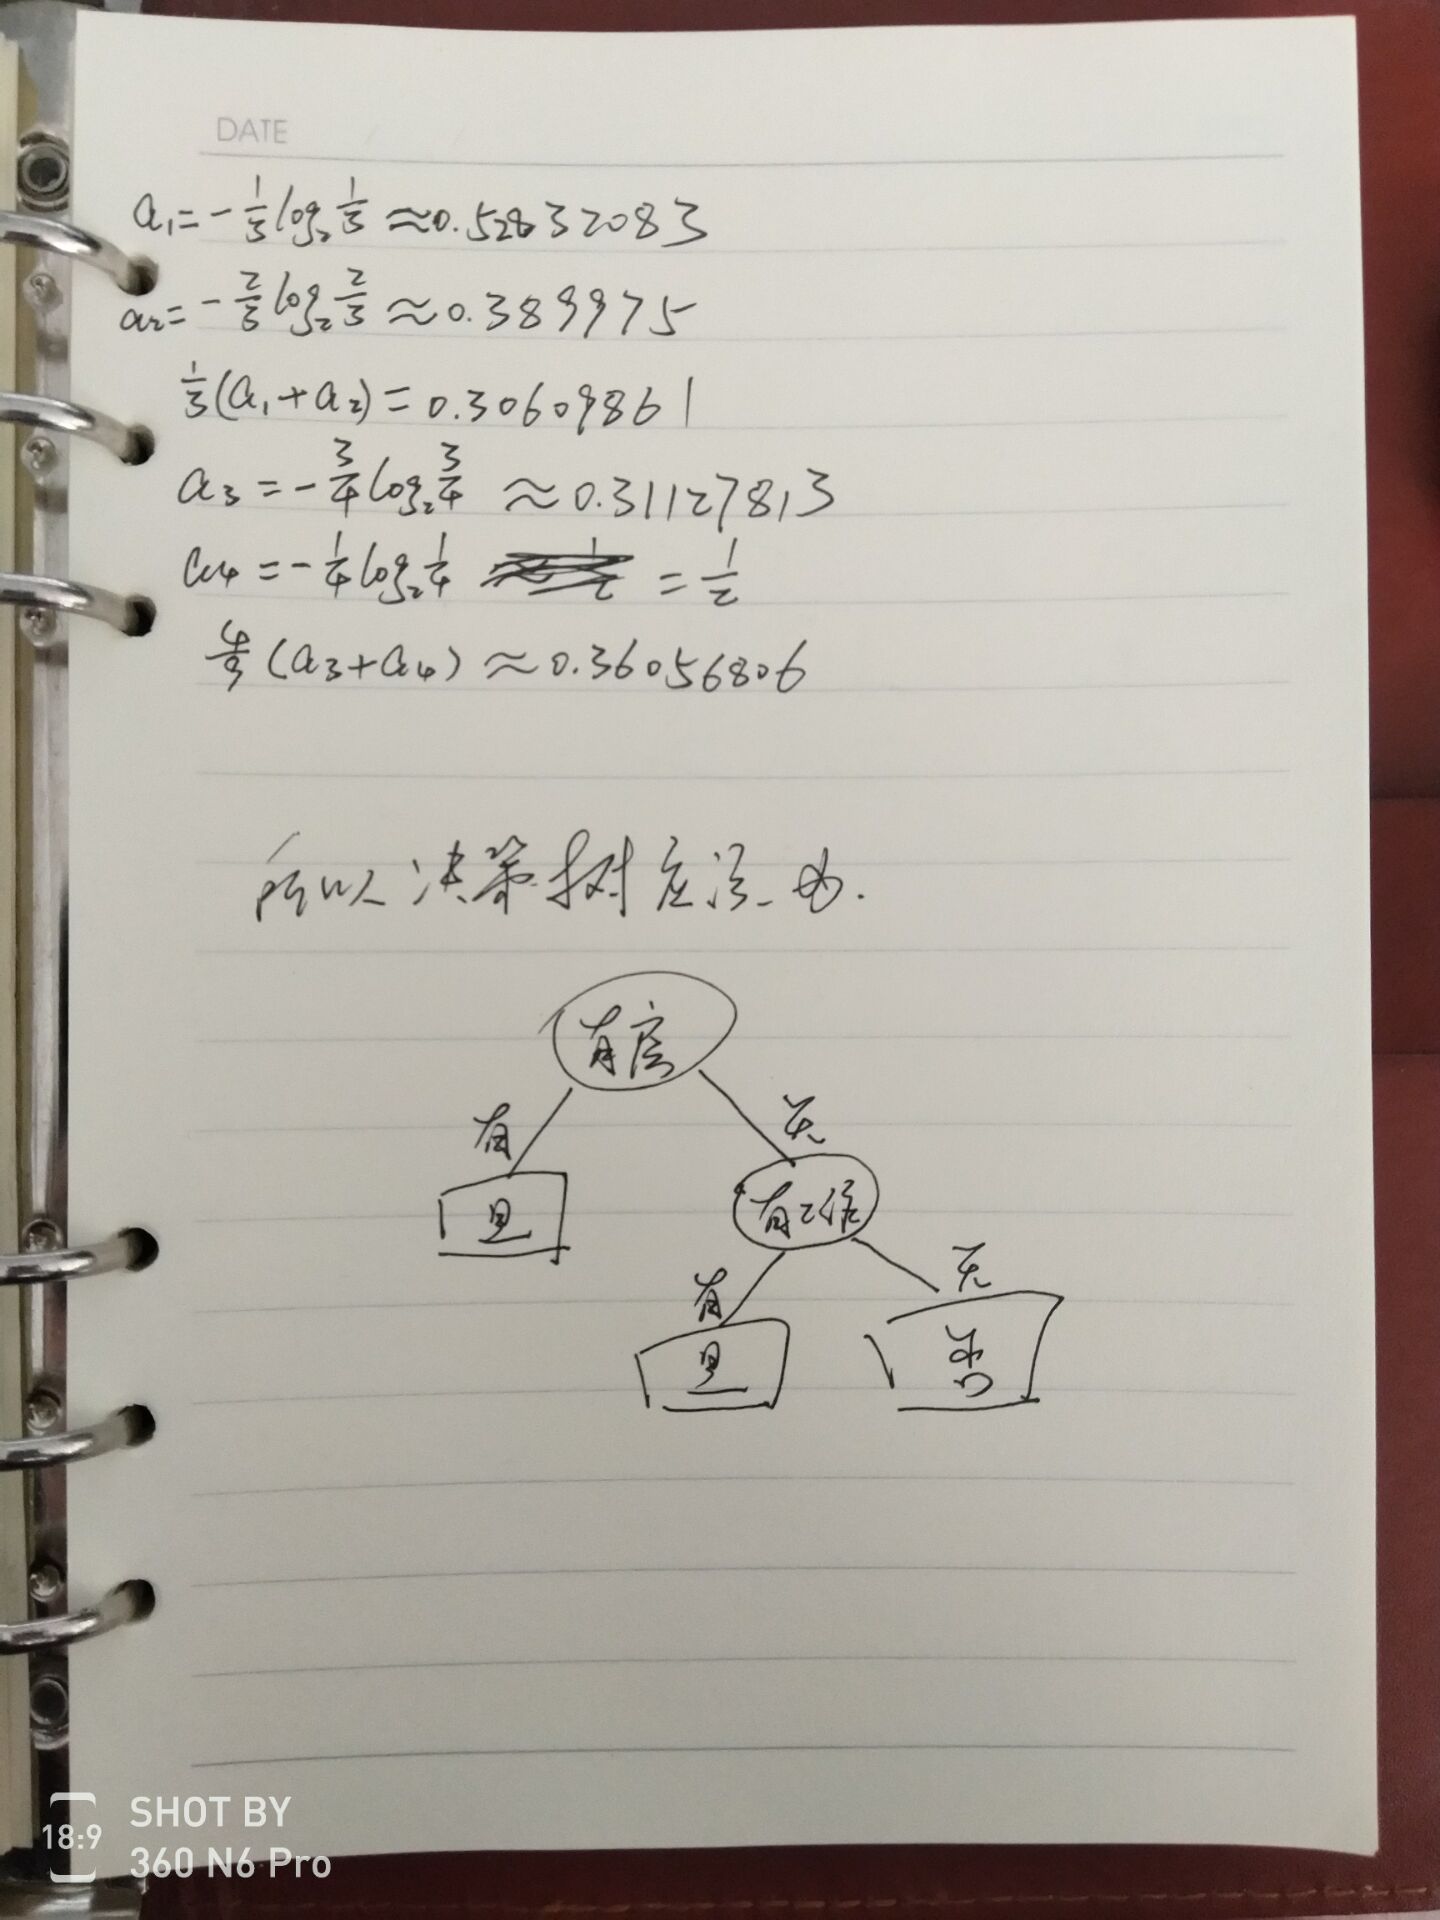 DATE
a₁=-1/3 log₂ 1/3 ≈0.52832083
a₂=-2/3 log₂ 2/3 ≈0.389975
1/3(a₁+a₂)=0.30609861
a₃=-3/4 log₂ 3/4 ≈0.31127813
a₄=-1/4 log₂ 1/4 =1/2
4/9(a₃+a₄)≈0.36056806
所以决策树应该为.
有房
有 无
是 有工作
有 无
是 否
SHOT BY
18:9
360 N6 Pro